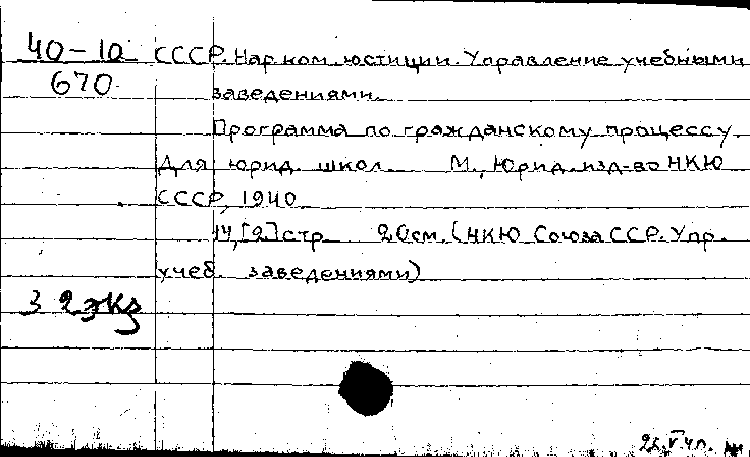 40-10 СССР. Нар. ком. юстиции. Управление учебными
670 заведениями.
Программа по гражданскому процессу.
Для юрид. школ. М., Юрид. изд-во НКЮ
СССР, 1940
14, [2] стр. 20 см. (НКЮ Союза ССР. Упр.
учеб. заведениями)
3 2 экз